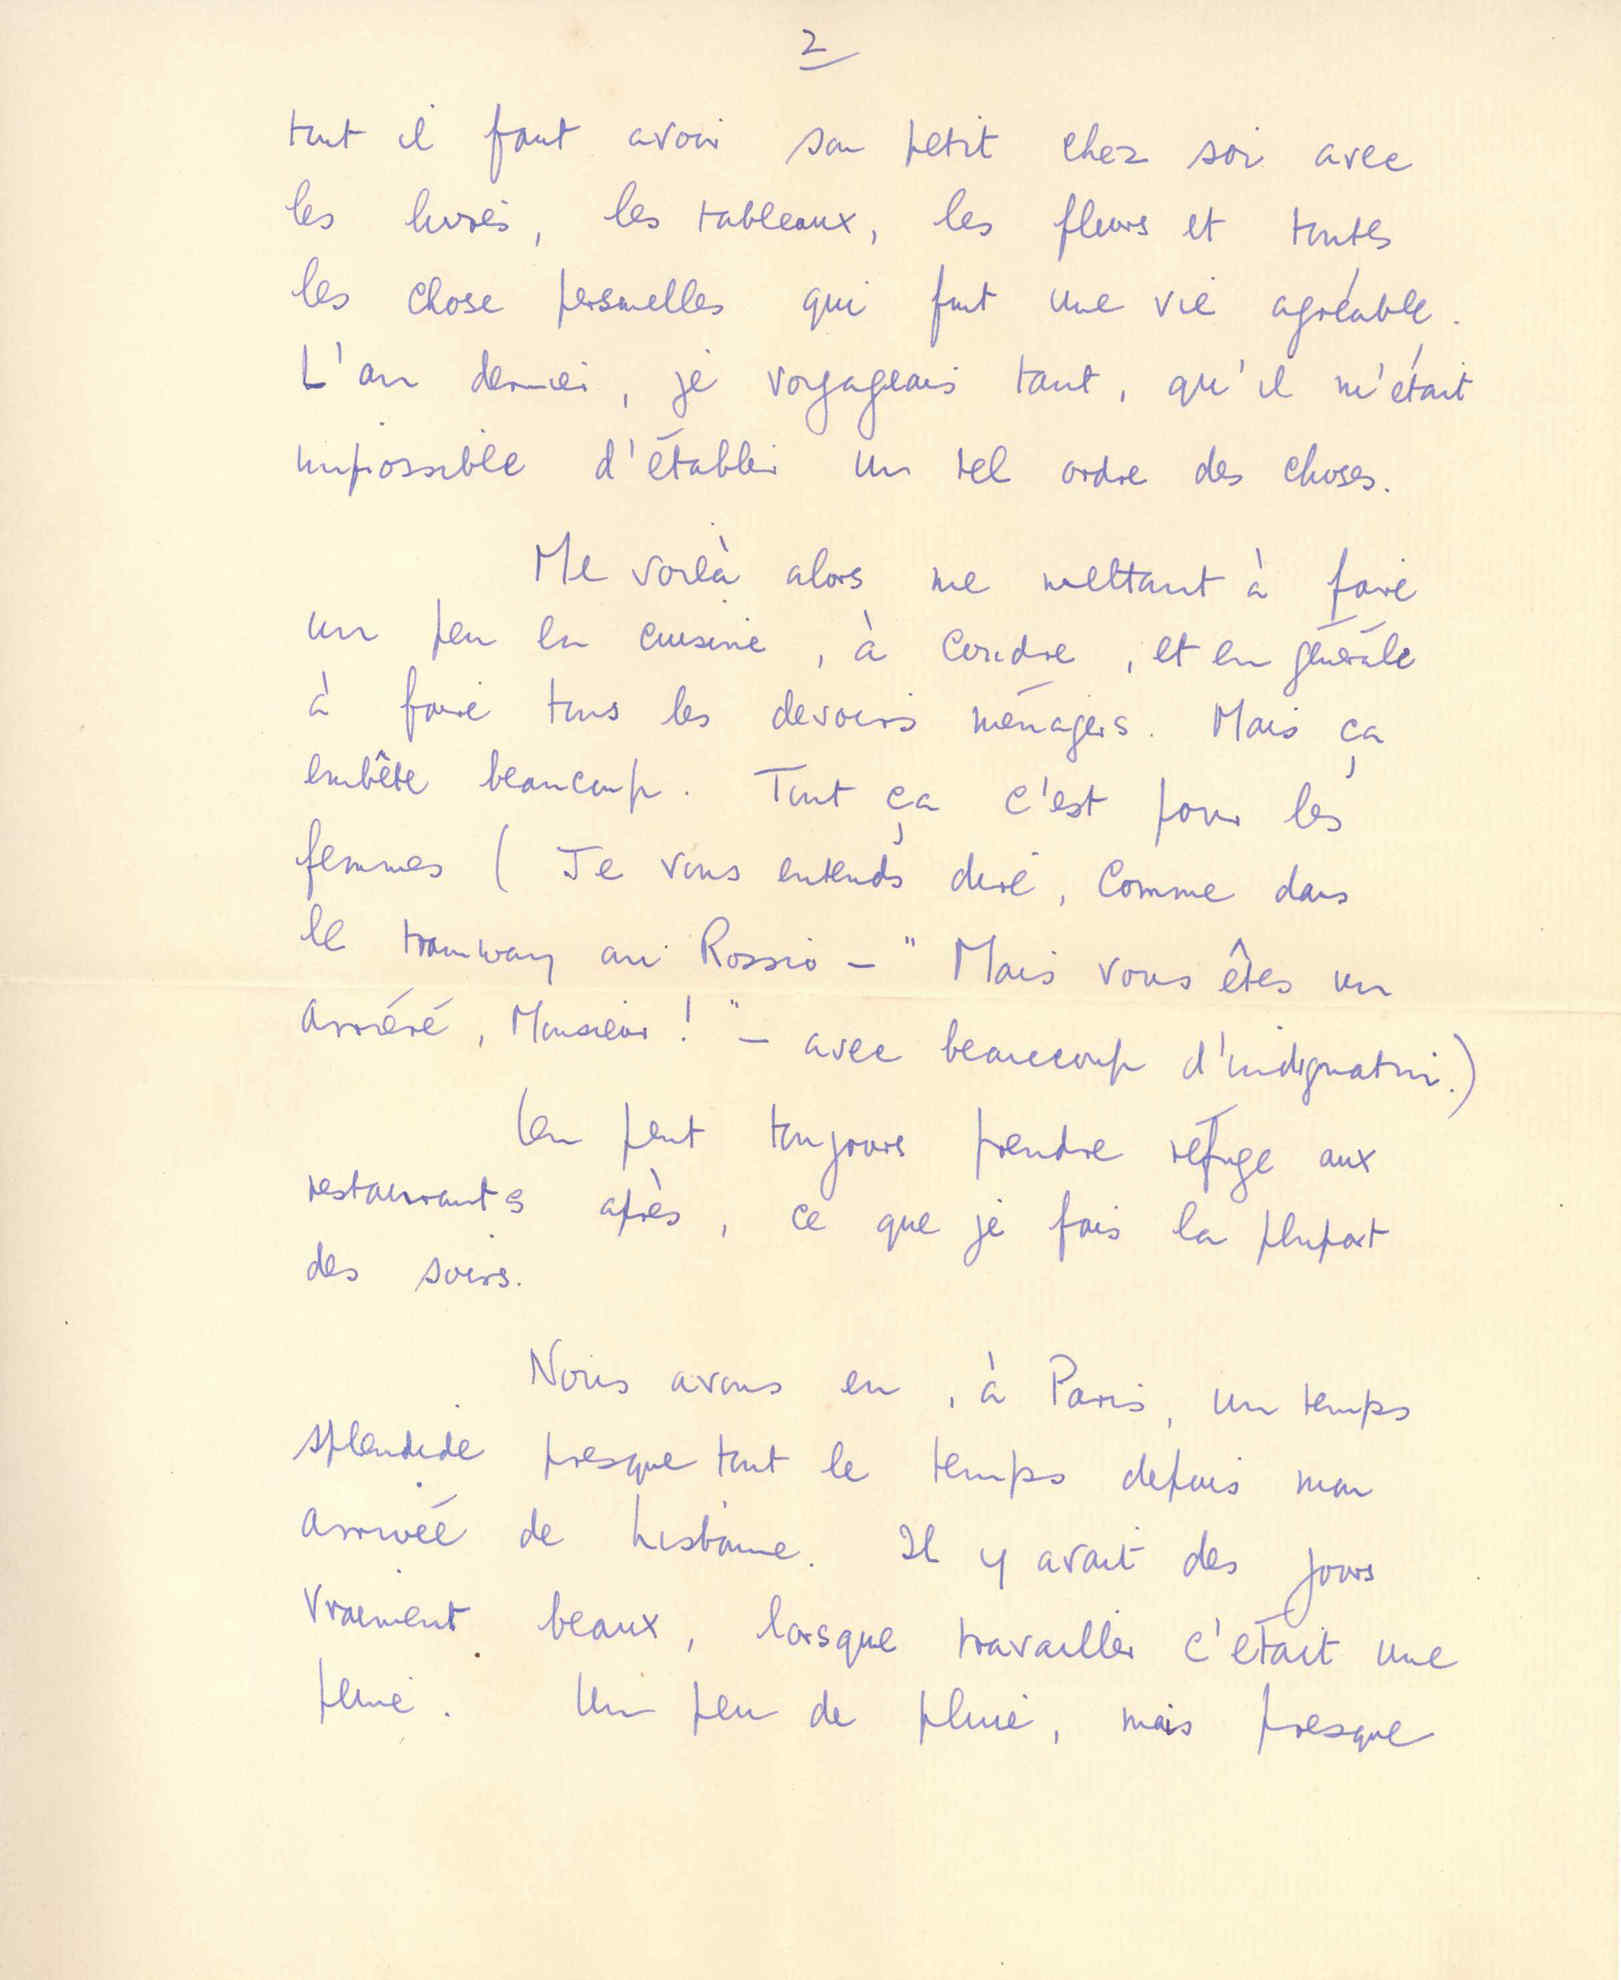 2
tout il faut avoir son petit chez soi avec
les livres, les tableaux, les fleurs et toutes
les chose personnelles qui font une vie agréable.
L'an dernier, je voyageais tant, qu'il m'était
impossible d'établir un tel ordre des choses.
Me voilà alors me mettant à faire
un peu la cuisine, à coudre, et en générale
à faire tous les devoirs ménagers. Mais ça
embête beaucoup. Tout ça c'est pour les
femmes ( Je vous entends dire, comme dans
le tramway au Rossio – " Mais vous êtes un
arriéré, Monsieur ! " – avec beaucoup d'indignation.)
peut toujours prendre refuge aux
restaurants après, ce que je fais la plupart
des soirs.
Nous avons eu, à Paris, un temps
splendide presque tout le temps depuis mon
arrivée de Lisbonne. Il y avait des jours
vraiment beaux, lorsque travailler c'était une
peine. Un peu de pluie, mais presque